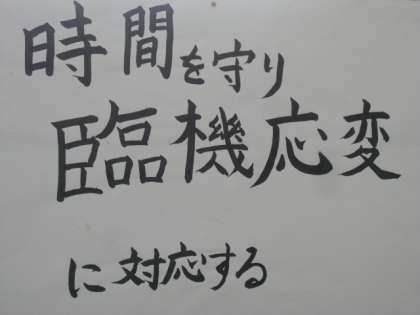 時間を守り
臨機応変
に対応する